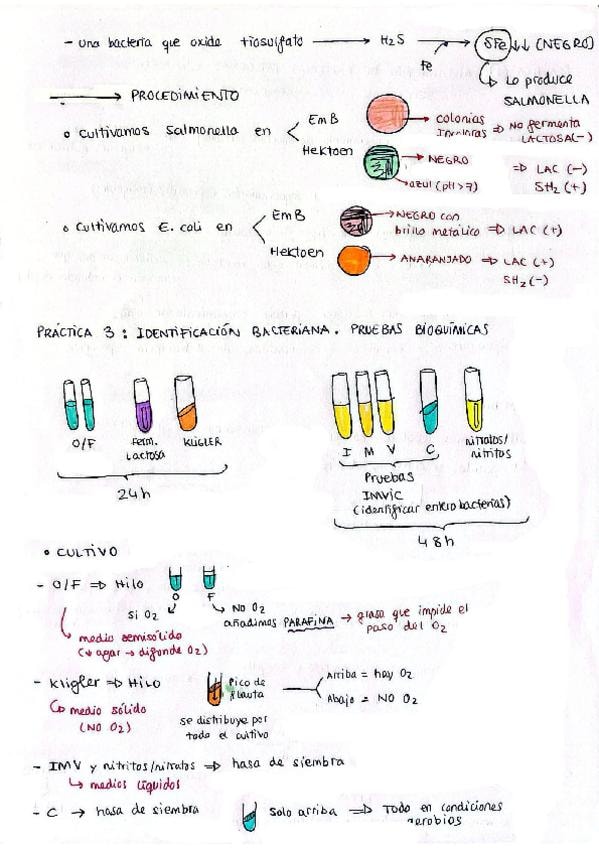 - una bacteria que oxide tiosulfato → H2S → SFe↓↓ (NEGRO)
Fe
Lo produce
SALMONELLA
→ PROCEDIMIENTO
o Cultivamos Salmonella en < EmB → colonias
incoloras ⇒ No fermenta
LACTOSA(-)
Hektoen → NEGRO ⇒ LAC (-)
→ azul (pH>7) SH2 (+)
o Cultivamos E. coli en < EmB → NEGRO con
brillo metálico ⇒ LAC (+)
Hektoen → ANARANJADO ⇒ LAC (+)
SH2 (-)
PRÁCTICA 3: IDENTIFICACIÓN BACTERIANA. PRUEBAS BIOQUÍMICAS
O/F Ferm. KLIGLER
Lactosa
24h
I M V C nitratos/
nitritos
Pruebas
IMViC
(identificar enterobacterias)
48h
• CULTIVO
- O/F ⇒ Hilo
O F
Si O2 NO O2
añadimos PARAFINA → grasa que impide el
paso del O2
medio semisólido
(↓ agar → difunde O2)
- Kligler ⇒ Hilo
Pico de
flauta
Arriba = hay O2
Abajo = NO O2
medio sólido
(NO O2)
se distribuye por
todo el cultivo
- IMV y nitritos/nitratos ⇒ hasa de siembra
↳ medios líquidos
- C → hasa de siembra Solo arriba ⇒ Todo en condiciones
aerobios